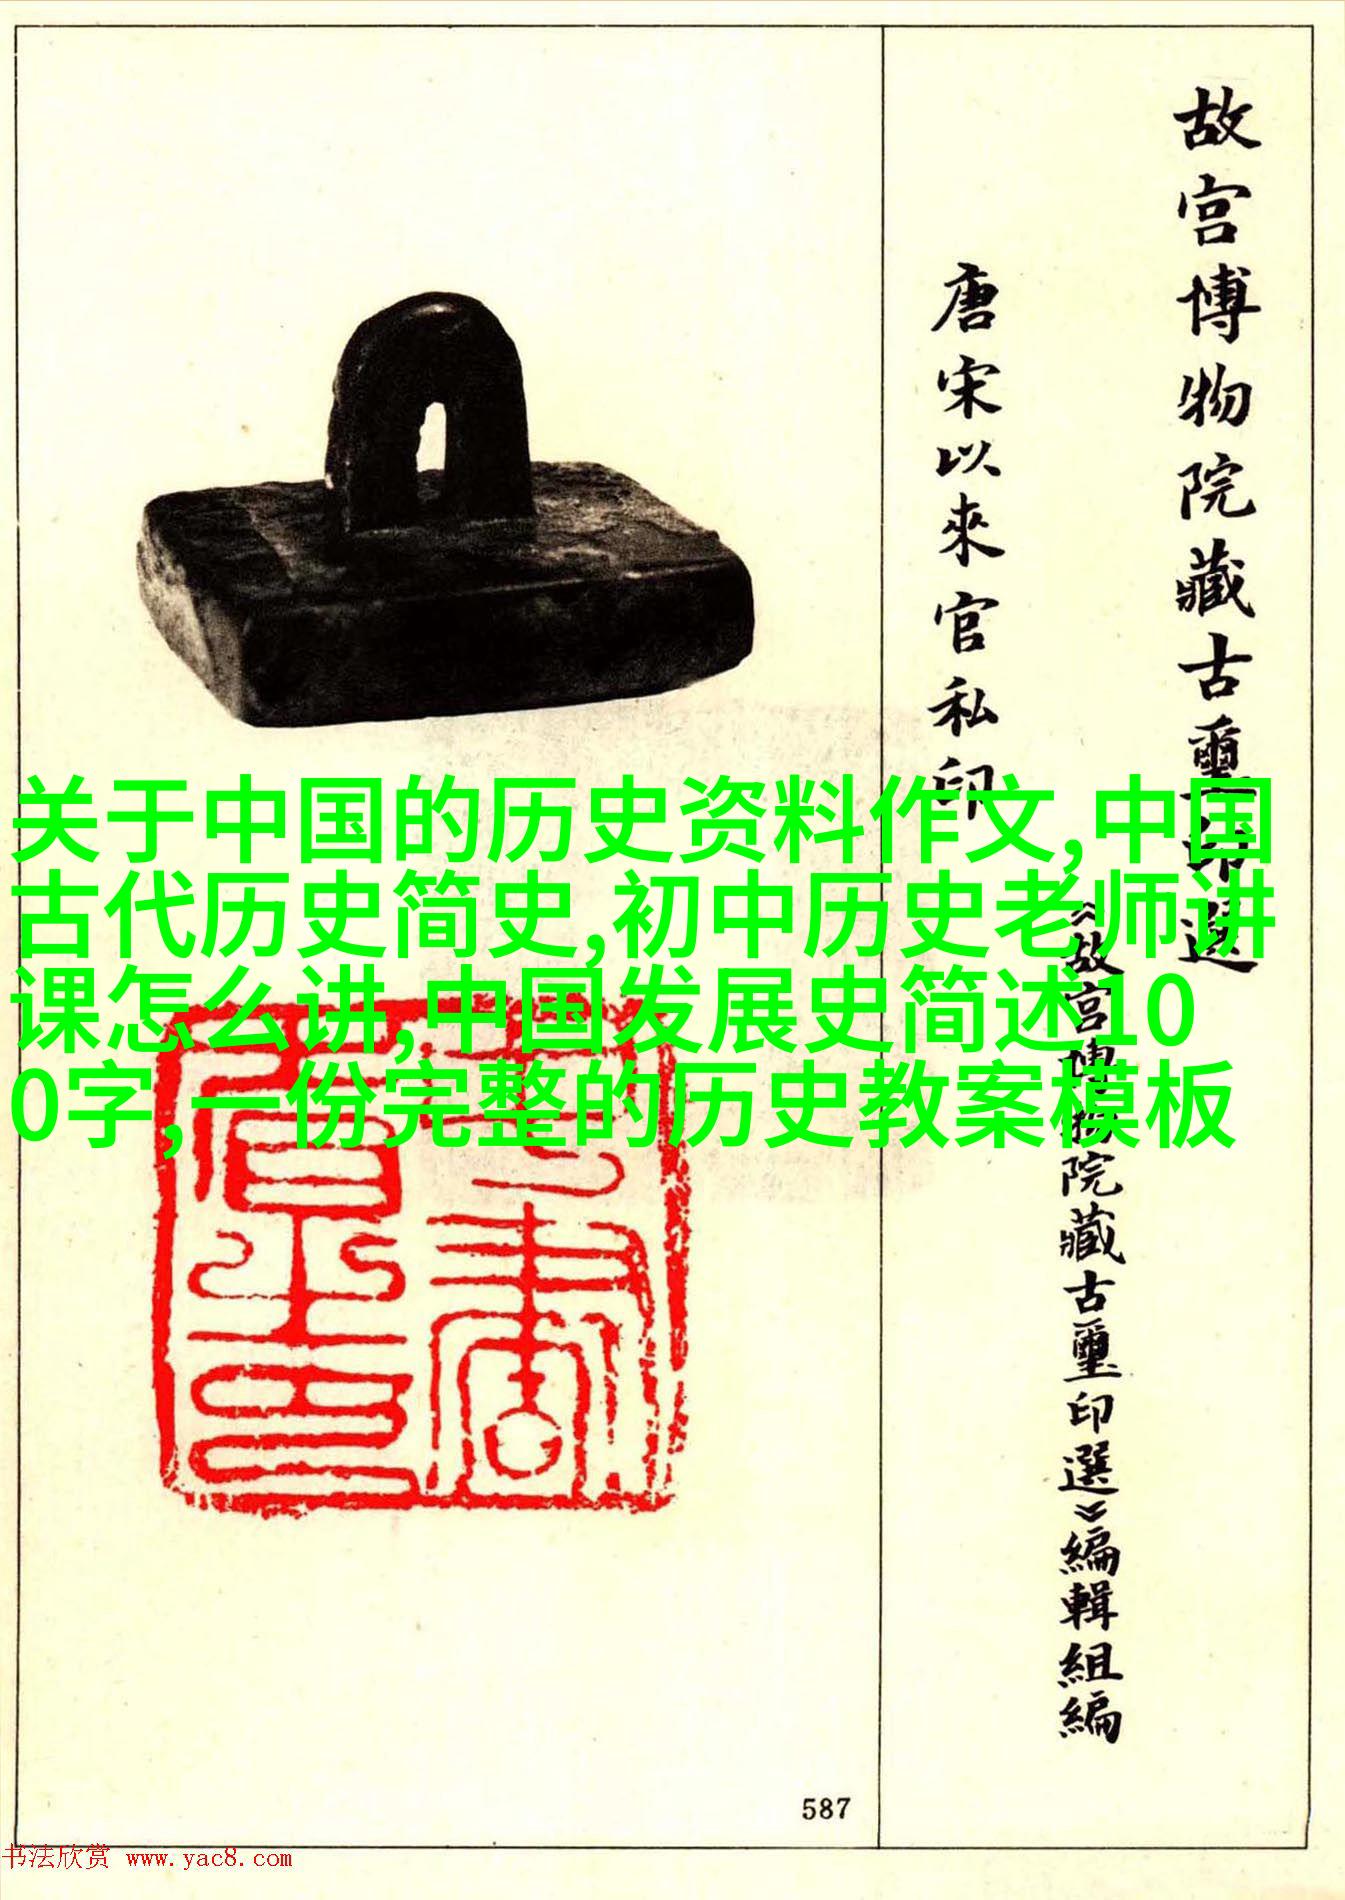 故宮博物院藏古璽印選
唐宋以來官私印
《故宮博物院藏古璽印選》編輯組編
关于中国的历史资料作文,中国
古代历史简史,初中历史老师讲
课怎么讲,中国发展史简述10
0字,一份完整的历史教案模板
587
书法欣赏 www.yac8.com